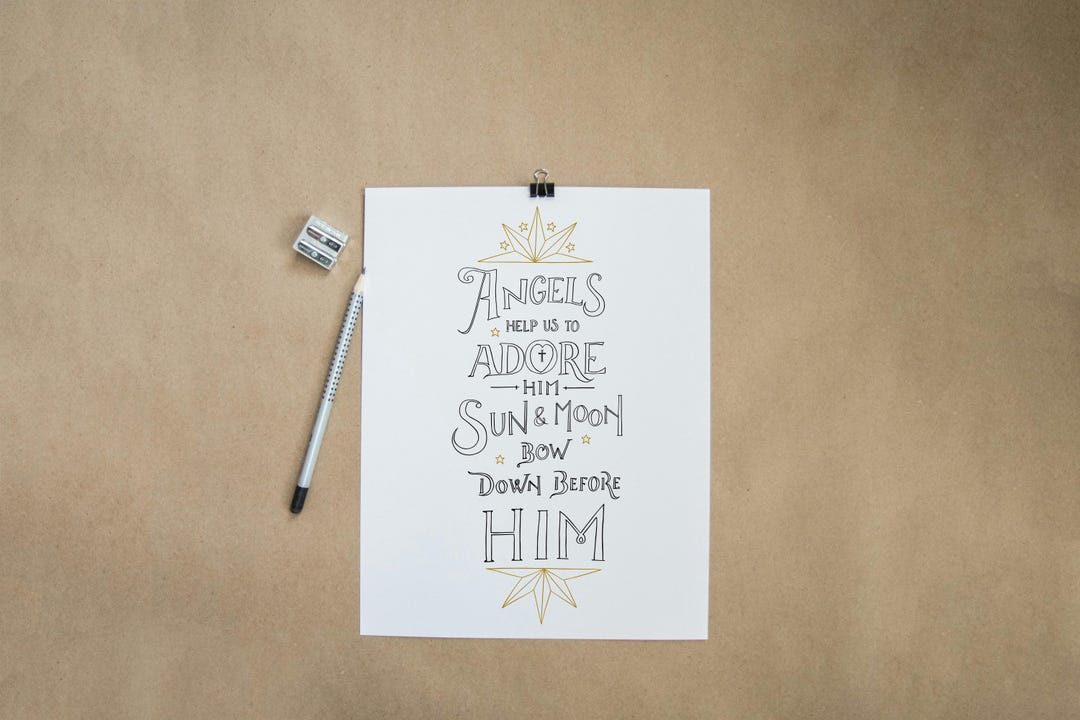 ANGELS
HELP US TO
ADORE
HIM
SUN & MOON
BOW
DOWN BEFORE
HIM